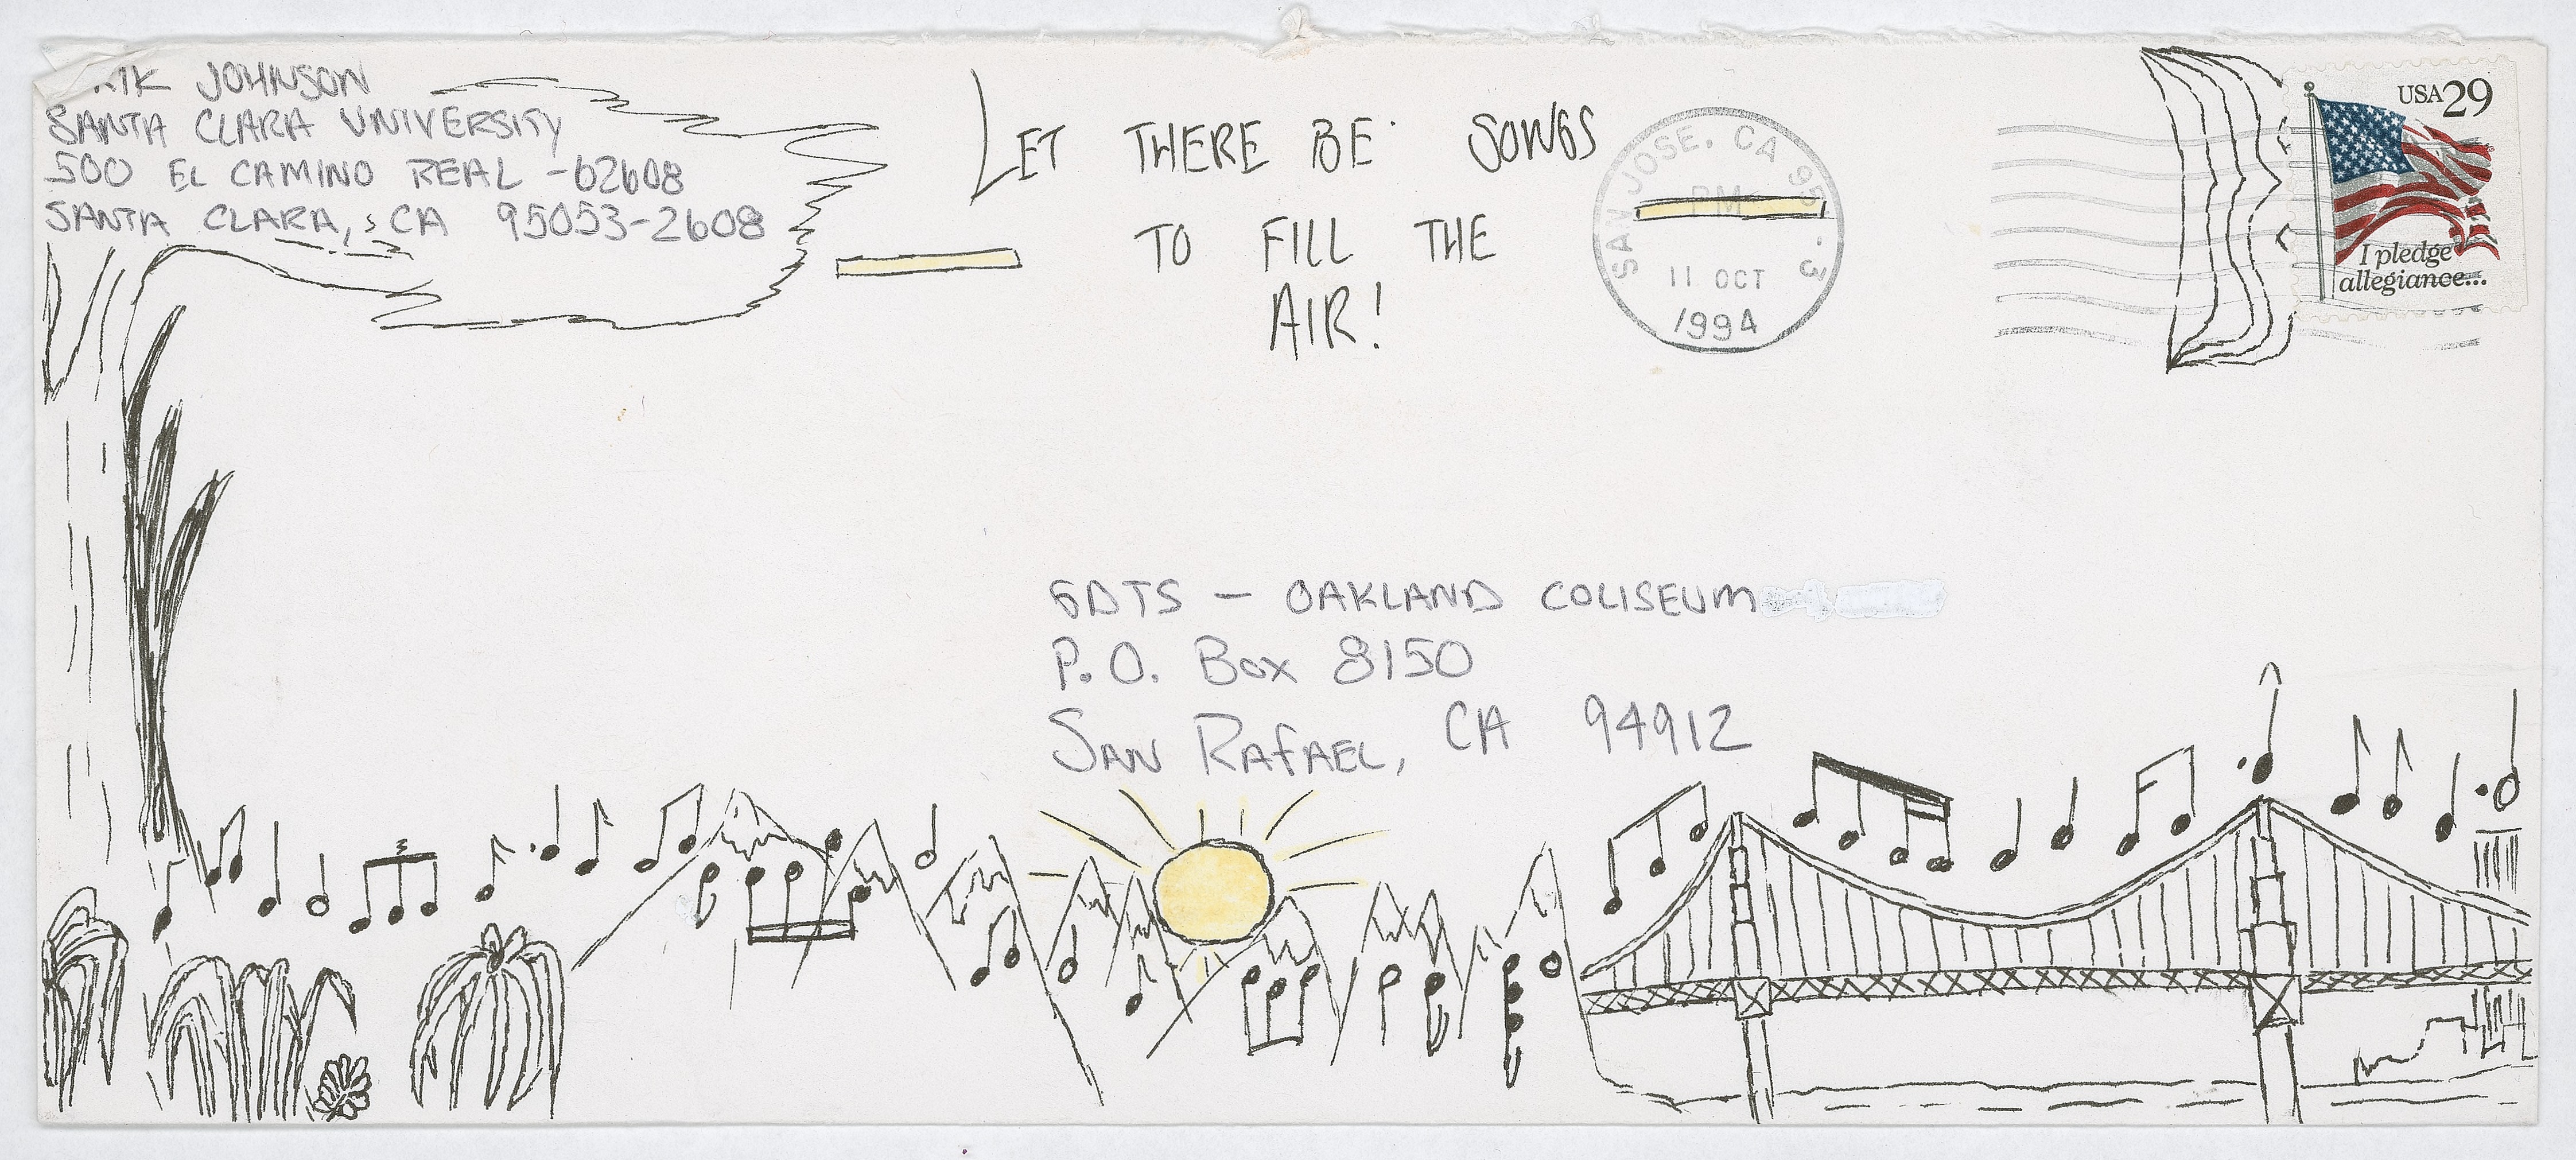 JOHNSON
SANTA CLARA UNIVERSITY
500 EL CAMINO REAL -62608
SANTA CLARA, CA 95053-2608
LET THERE BE SONGS
TO FILL THE
AIR!
SAN JOSE, CA
PM
11 OCT
1994
USA 29
I pledge
allegiance...
GDTS — OAKLAND COLISEUM
P.O. Box 8150
SAN RAFAEL, CA 94912